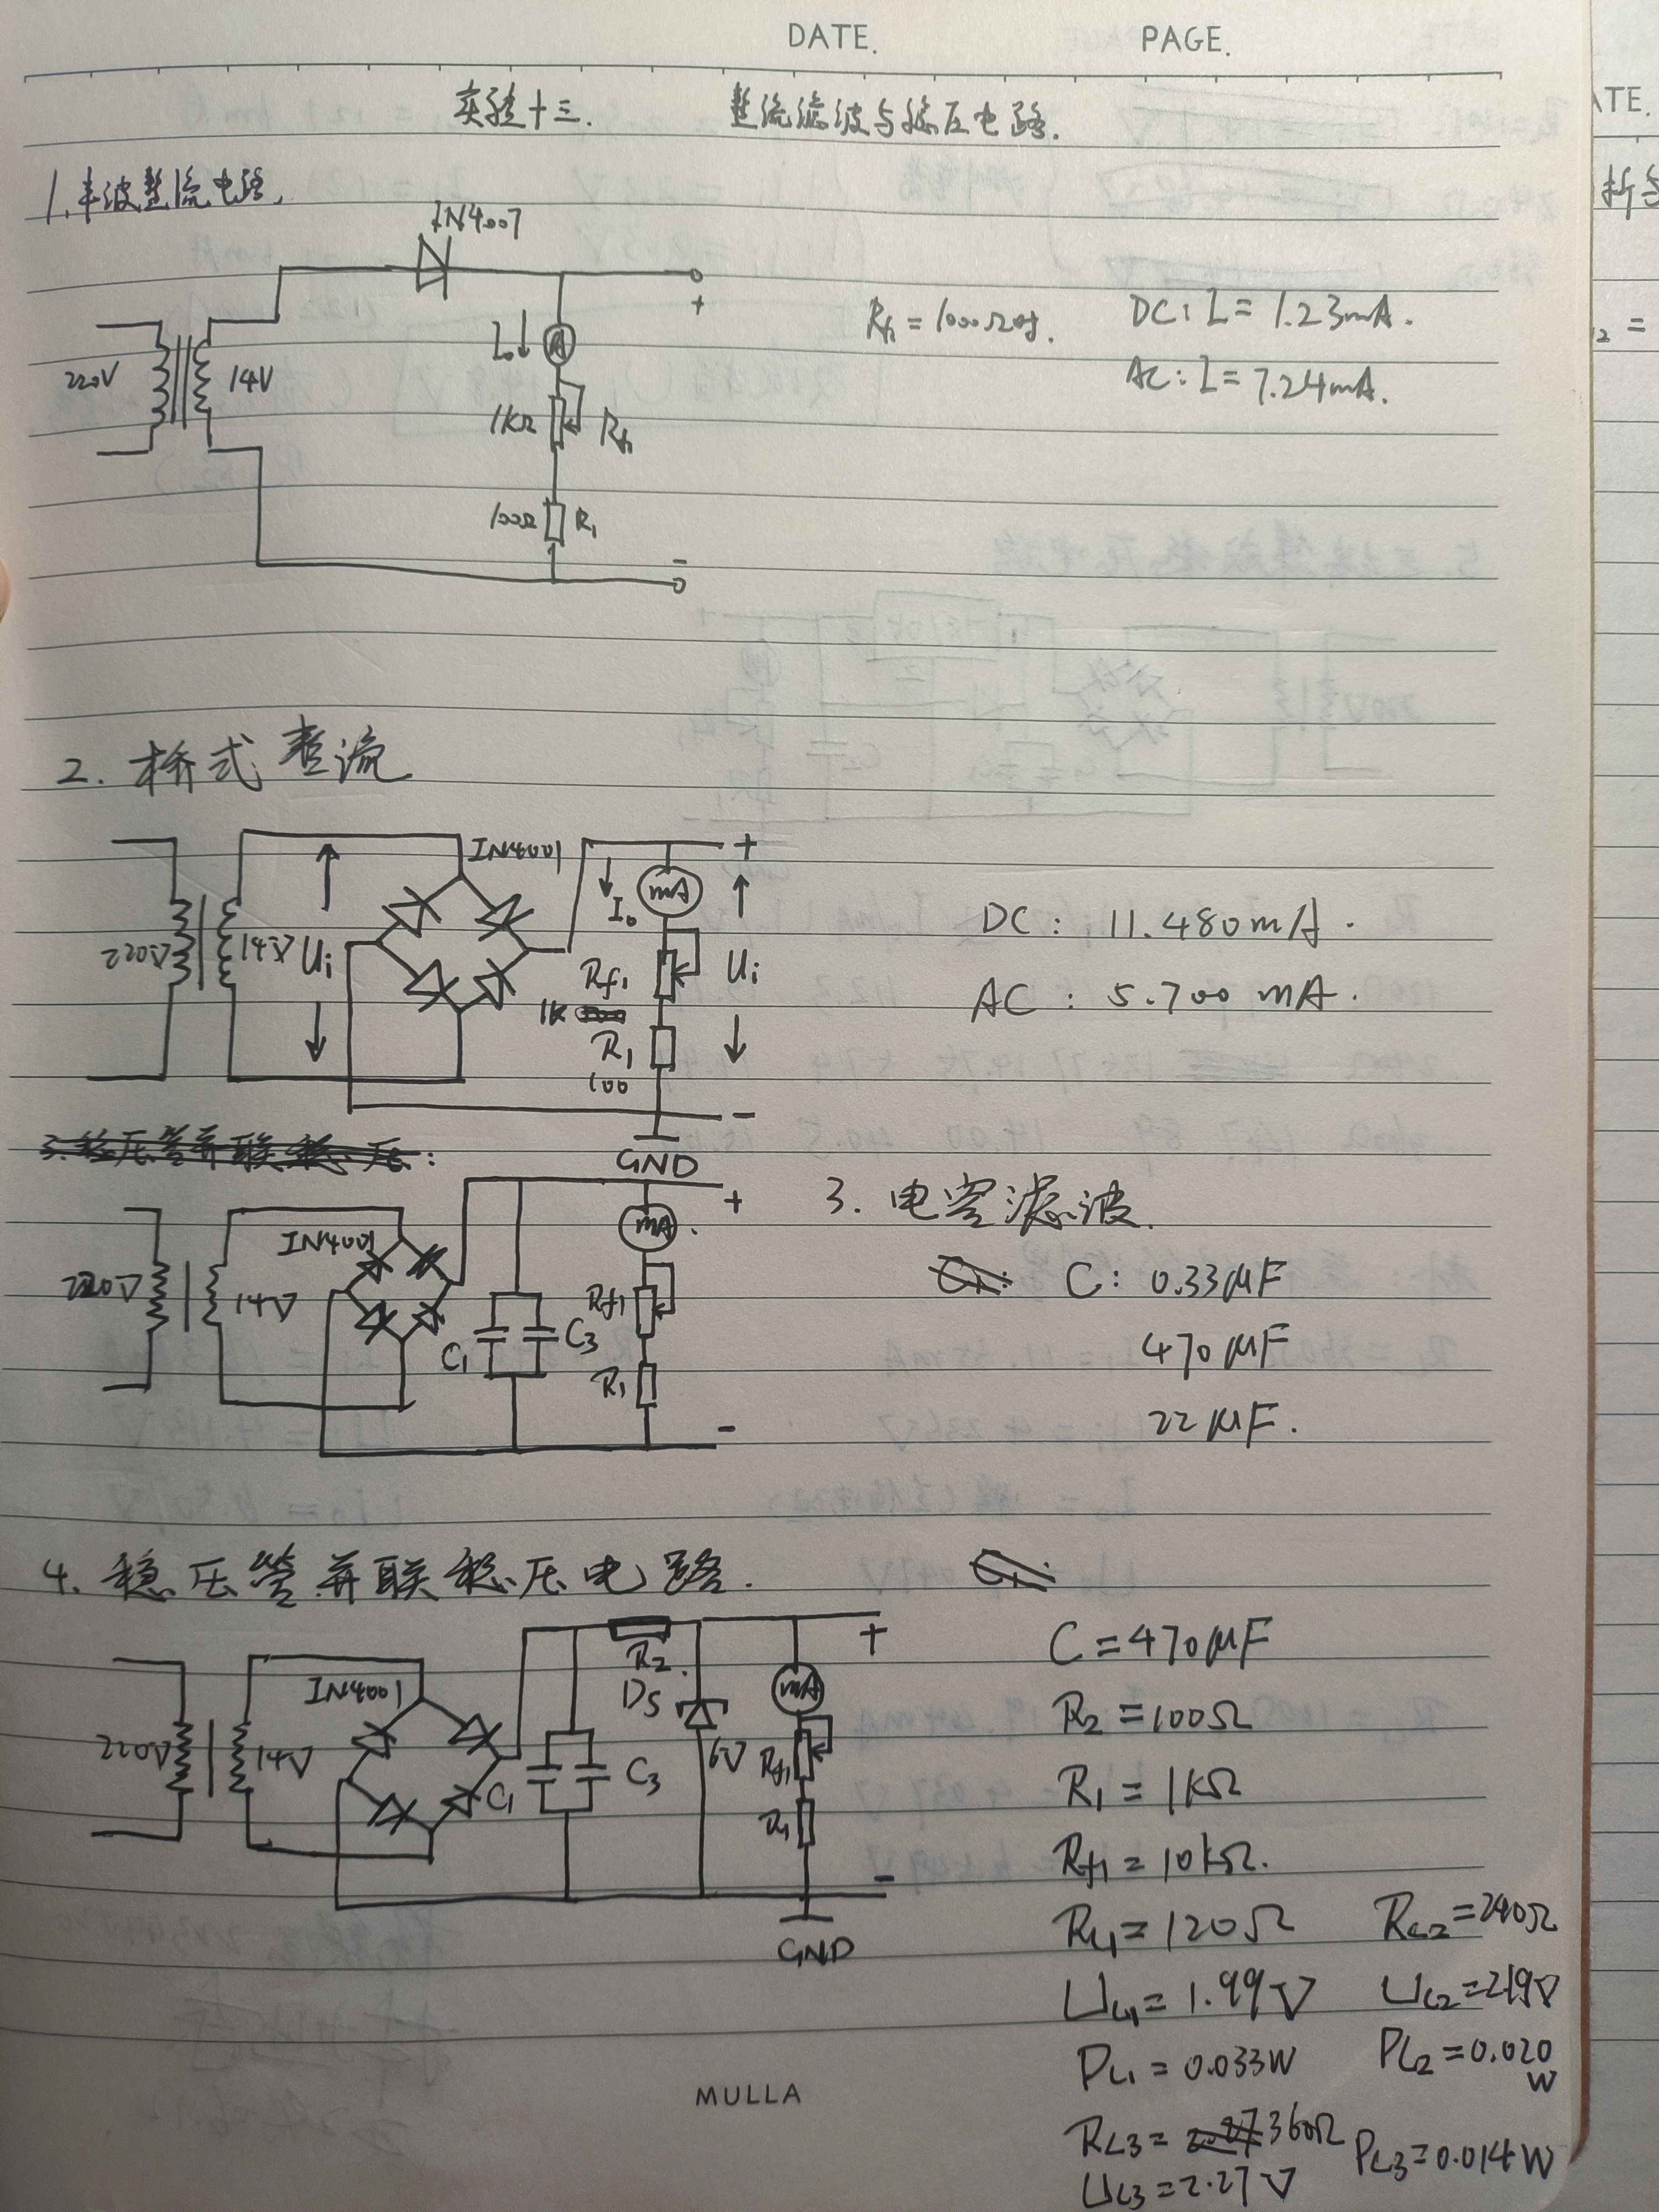 DATE. PAGE.
实验十三. 整流滤波与稳压电路.
1.半波整流电路.
IN4007
220V 14V
I₀↓ A
1kΩ Rf1
100Ω R₁
+
-
Rf1 = 1000Ω时. DC: I = 1.23mA.
AC: I = 7.24mA.
2. 桥式整流
IN4001
220V 14V Ui
I₀ mA +
Rf1 Ui
1K
R₁
100
-
GND
DC: 11.480mA.
AC: 5.700 mA.
3.稳压管并联稳压:
3. 电容滤波.
IN4001
220V 14V
C₁ C₃
mA. +
Rf1
R₁
-
C₁: C: 0.33μF
470μF
22μF.
4. 稳压管并联稳压电路.
C₁:
IN4001
220V 14V
C₁ C₃
R₂.
D5
6V
mA +
Rf1
R₁
-
GND
C=470μF
R₂=100Ω
R₁=1kΩ
Rf1=10kΩ.
RL1=120Ω RL2=240Ω
UL1=1.99V UL2=2.19V
PL1=0.033W PL2=0.020W
RL3=360Ω PL3=0.014W
UL3=2.27V
MULLA
ATE.